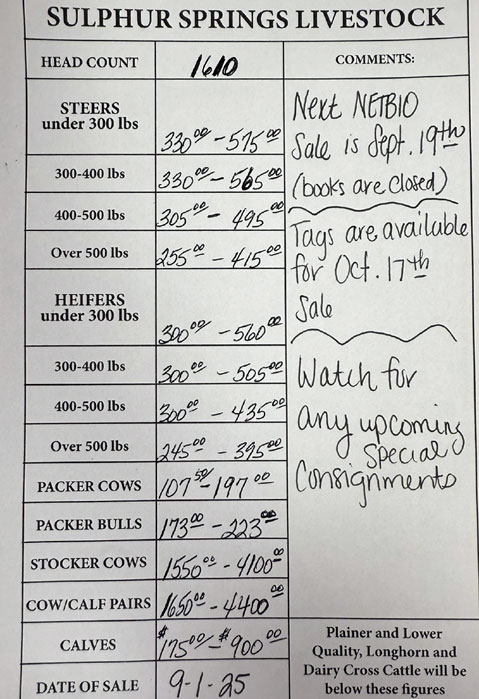 SULPHUR SPRINGS LIVESTOCK
HEAD COUNT 1610
COMMENTS:
STEERS
under 300 lbs 330.00 - 575.00
300-400 lbs 330.00 - 565.00
400-500 lbs 305.00 - 495.00
Over 500 lbs 255.00 - 415.00
HEIFERS
under 300 lbs 300.00 - 560.00
300-400 lbs 300.00 - 505.00
400-500 lbs 300.00 - 435.00
Over 500 lbs 245.00 - 395.00
PACKER COWS 107.50 - 197.00
PACKER BULLS 173.00 - 223.00
STOCKER COWS 1550.00 - 4100.00
COW/CALF PAIRS 1650.00 - 4400.00
CALVES $175.00 - $900.00
DATE OF SALE 9-1-25
Next NETBIO
Sale is Sept. 19th
(books are closed)
Tags are available
for Oct. 17th
Sale
Watch for
any upcoming
Special
Consignments
Plainer and Lower
Quality, Longhorn and
Dairy Cross Cattle will be
below these figures